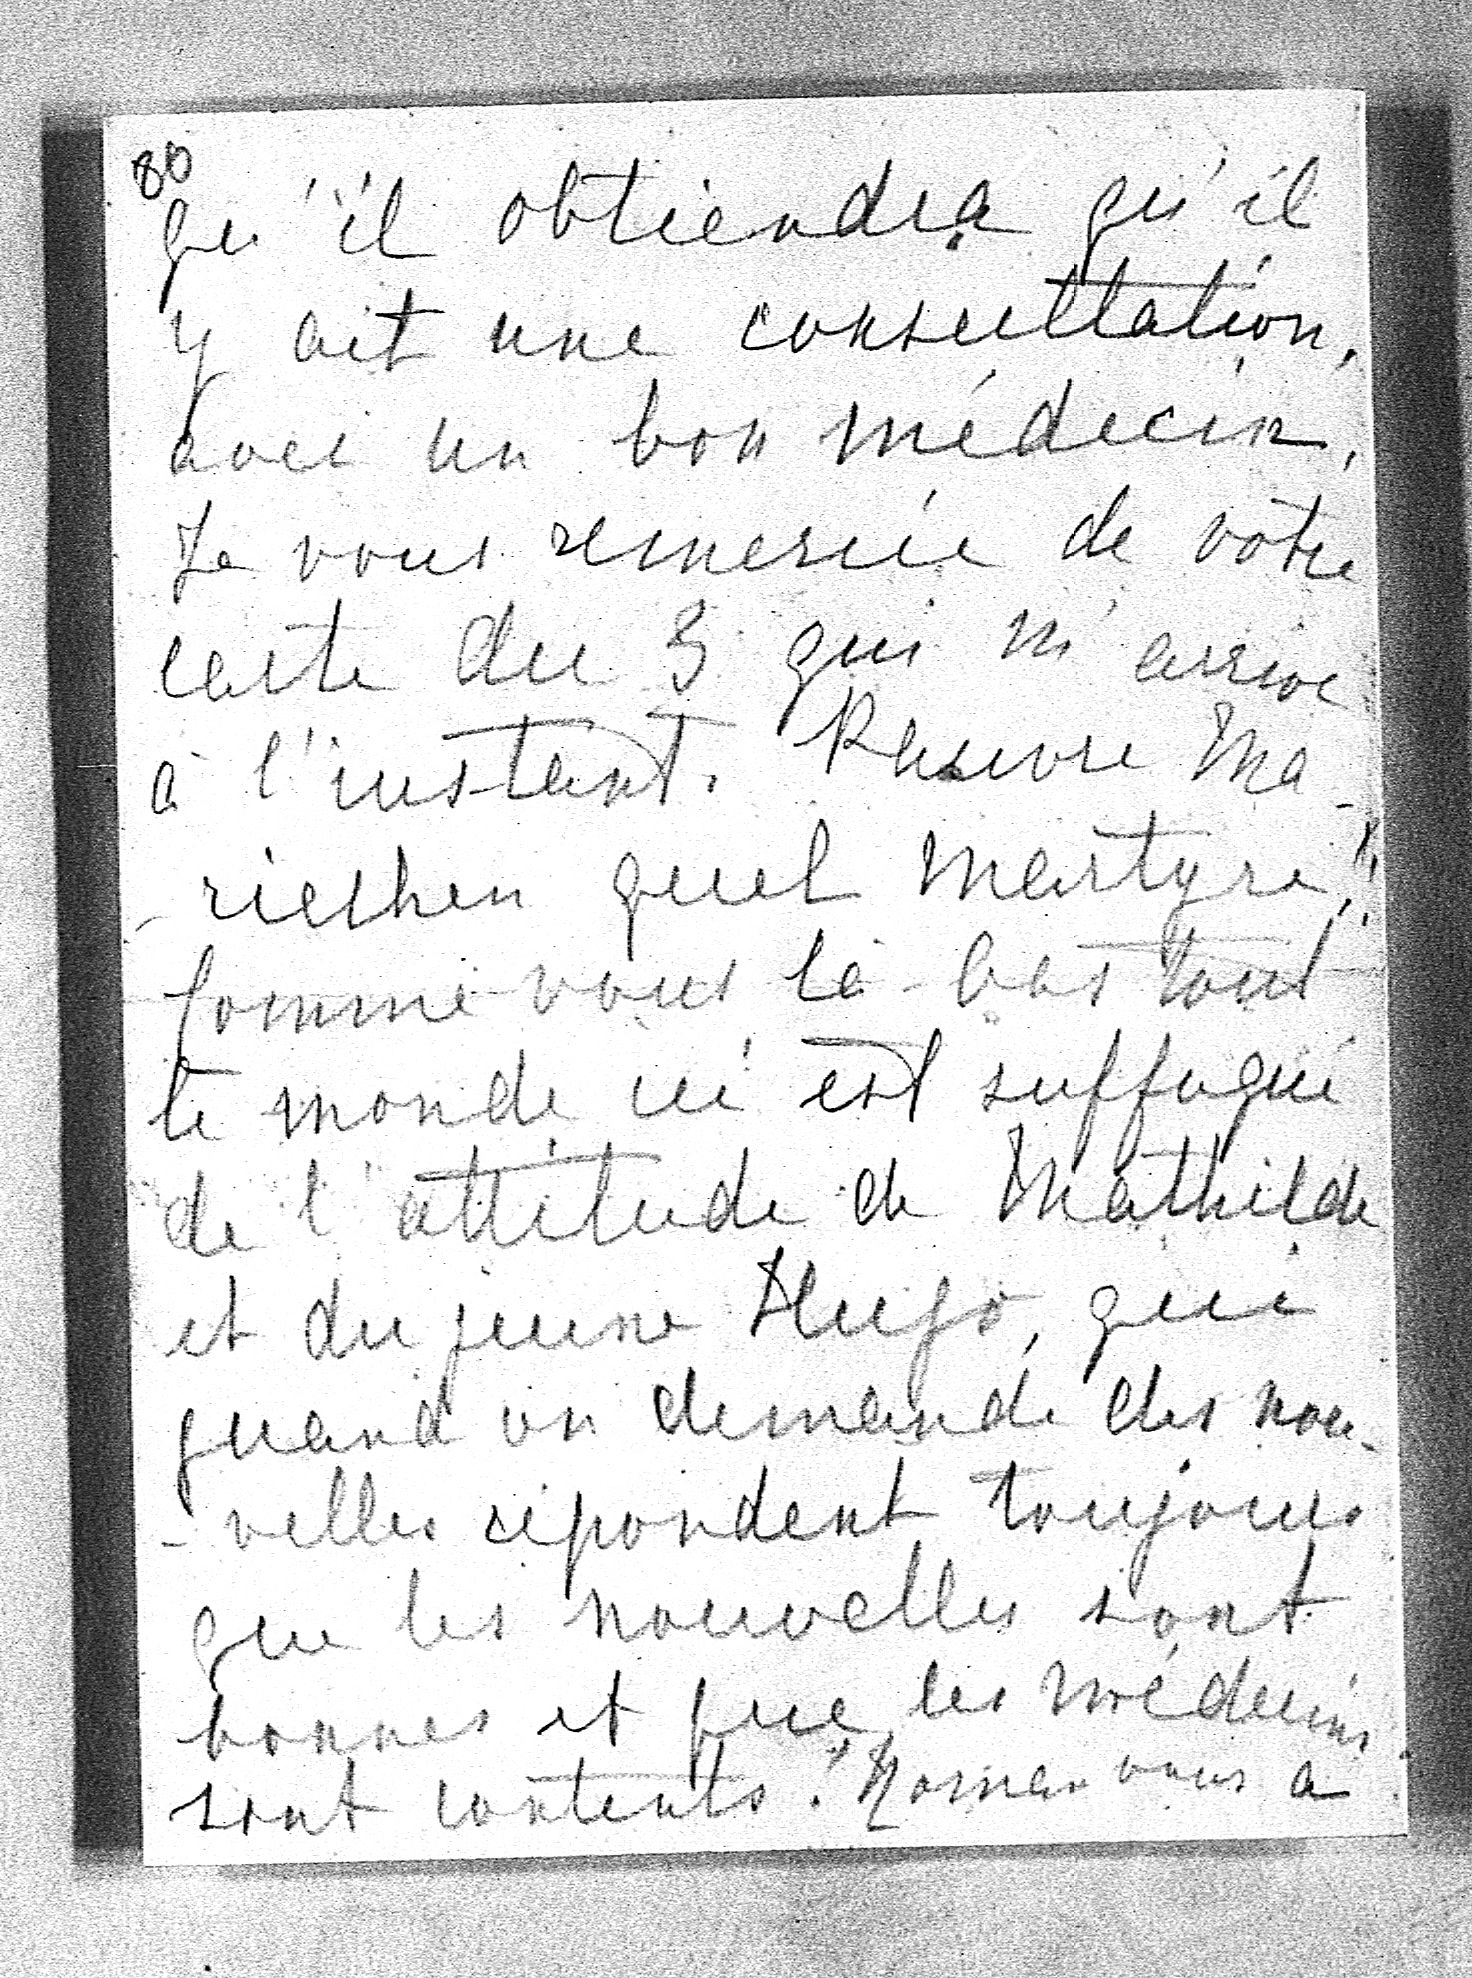 80
qu'il obtiendra qu'il
y ait une consultation,
avec un bon médecin,
Je vous remercie de votre
carte du 3 qui m'arrive
à l'instant. Pauvre Ma-
-riechen quel martyre!!
Comme vous là-bas tout
le monde ici est suffoqué
de l'attitude de Mathilde
et du jeune Hugo, qui
quand on demande des nou-
-velles répondent toujours
que les nouvelles sont
bonnes et que les médecins
sont contents! Roman vous a